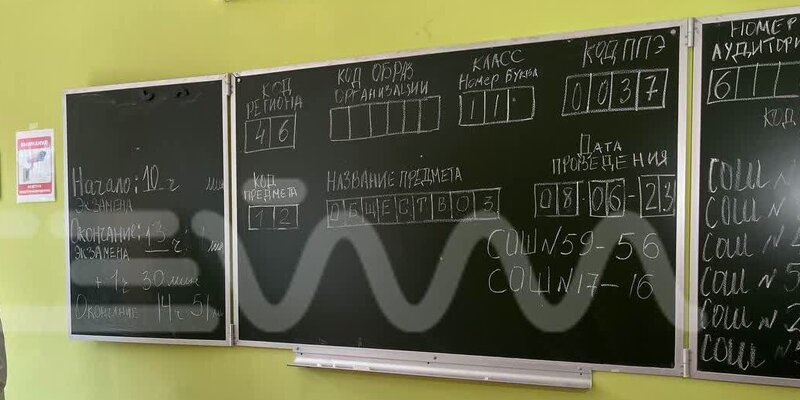 Начало: 10 ч мин
ЭКЗАМЕНА
Окончание: 13 ч
ЭКЗАМЕНА
+ 1 ч 30 мин
Окончание 14 ч 51
КОД
РЕГИОНА
46
КОД ОБРАЗ
ОРГАНИЗАЦИИ
КЛАСС
Номер Буква
11
КОД ППЭ
0037
КОД
ПРЕДМЕТА
12
НАЗВАНИЕ ПРЕДМЕТА
ОБЩЕСТВОЗ
ДАТА
ПРОВЕДЕНИЯ
08.06-23
СОШ N59-56
СОШ N17-16
НОМЕР
АУДИТОРИ
6
КОД
СОШ N
СОШ N
СОШ N
СОШ N 5
СОШ N 2
СОШ N